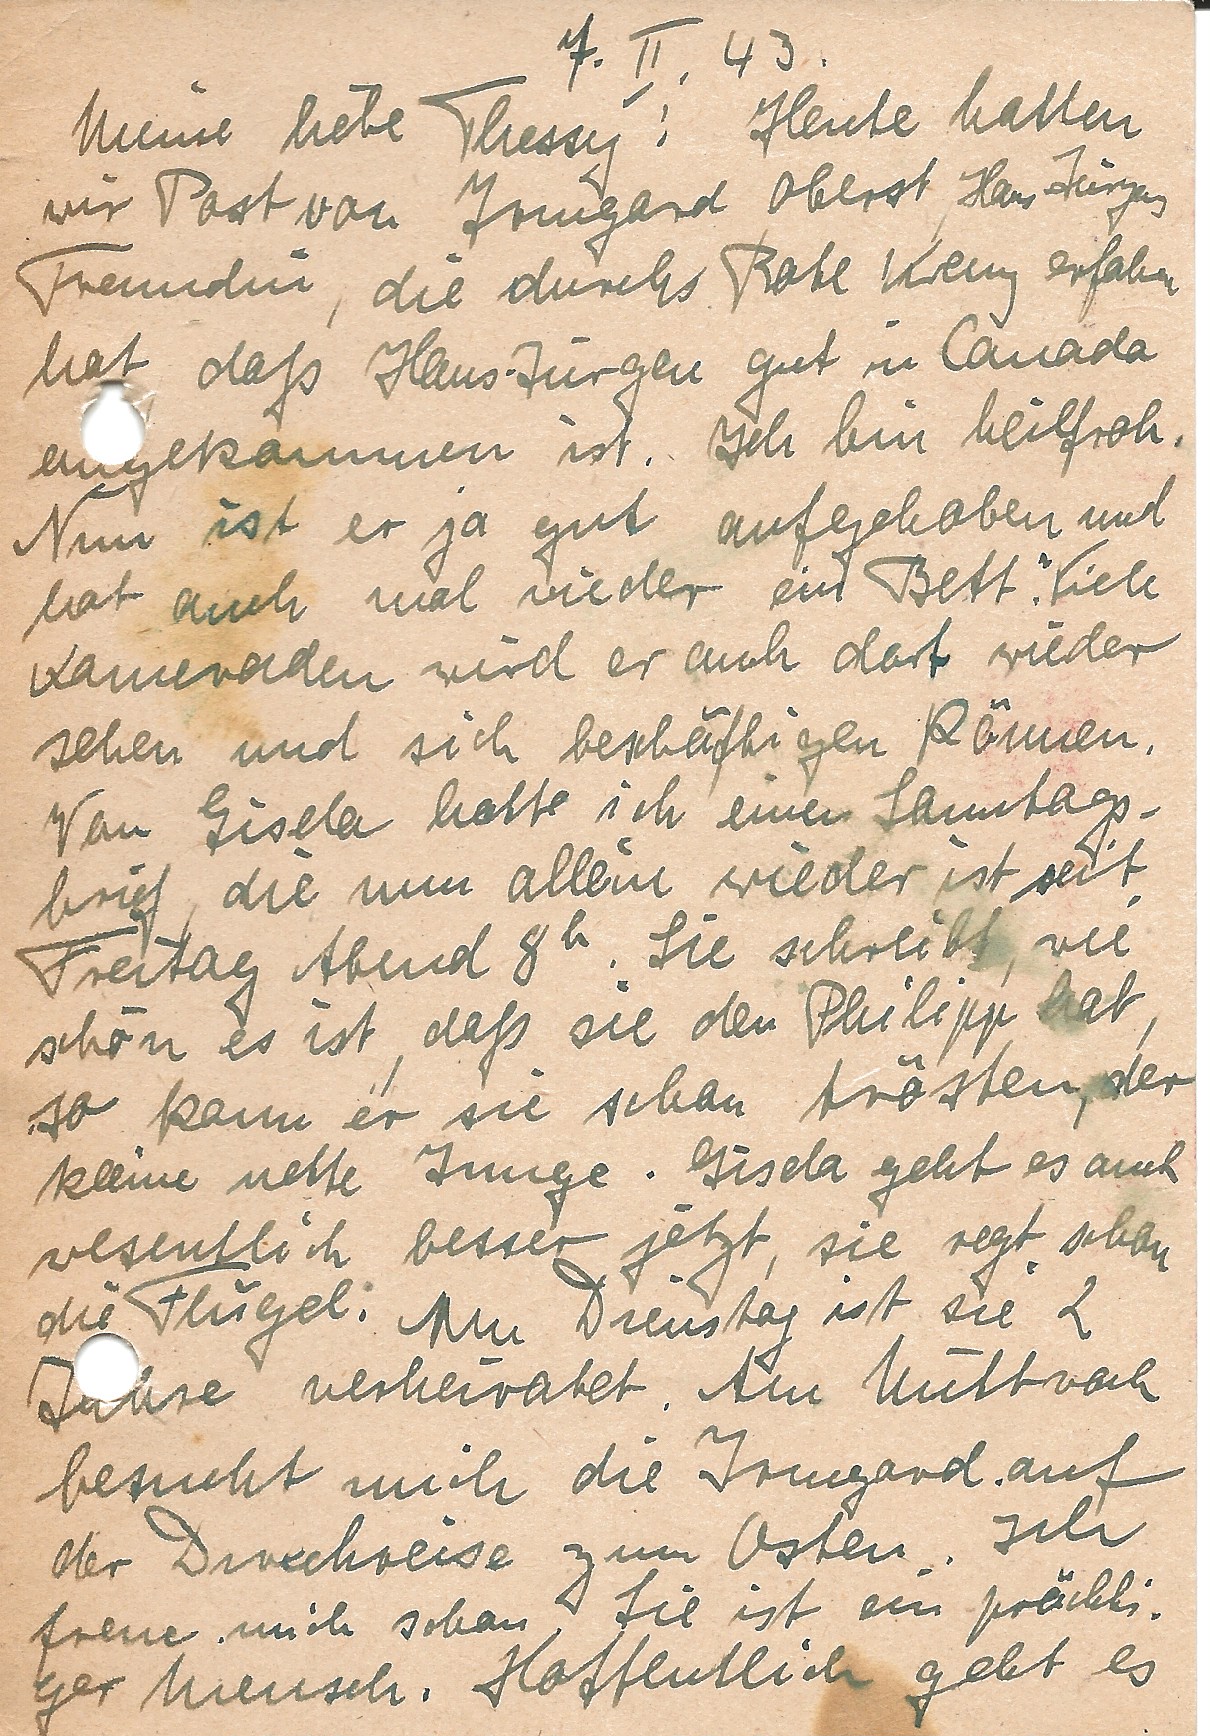 7. II. 43.
Meine liebe Thessy! Heute hatten
wir Post von Irmgard Oberst, Hans Jürgens
Freundin, die durchs Rote Kreuz erfahren
hat, daß Hans-Jürgen gut in Canada
angekommen ist. Ich bin heilfroh.
Nun ist er ja gut aufgehoben und
hat auch mal wieder ein Bett. Viele
Kameraden wird er auch dort wieder
sehen und sich beschäftigen können.
Von Gisela hatte ich einen Sonntags-
brief, die nun allein wieder ist seit
Freitag Abend 8h. Sie schreibt, wie
schön es ist, daß sie den Philipp hat,
so kann er sie schon trösten, der
kleine nette Junge. Gisela geht es auch
wesentlich besser jetzt, sie regt schon
die Flügel. Am Dienstag ist sie 2
Jahre verheiratet. Am Mittwoch
besucht mich die Irmgard auf
der Durchreise zum Osten. Ich
freue mich schon. Sie ist ein prächti-
ger Mensch. Hoffentlich geht es